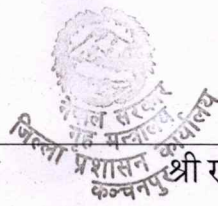 नेपाल सरकार
गृह मन्त्रालय
जिल्ला प्रशासन कार्यालय
कञ्चनपुर
श्री